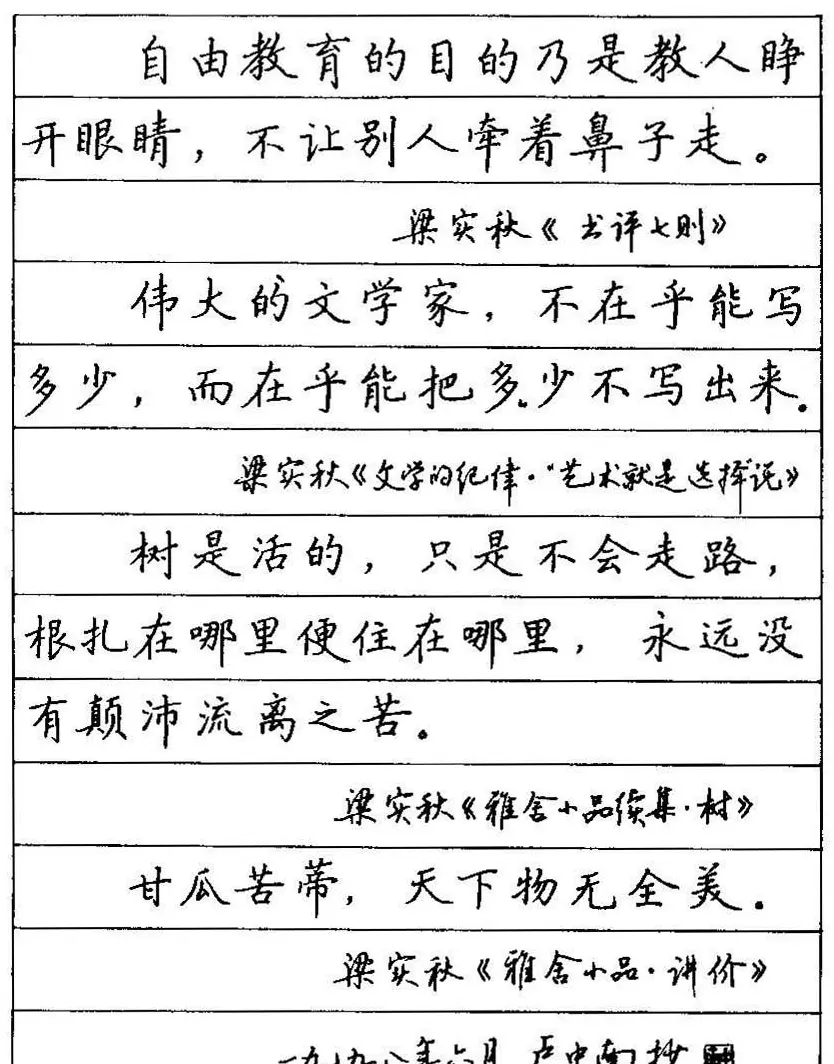 自由教育的目的乃是教人睁
开眼睛，不让别人牵着鼻子走。
梁实秋《书评七则》
伟大的文学家，不在乎能写
多少，而在乎能把多少不写出来。
梁实秋《文学的纪律·“艺术就是选择”说》
树是活的，只是不会走路，
根扎在哪里便住在哪里，永远没
有颠沛流离之苦。
梁实秋《雅舍小品续集·树》
甘瓜苦蒂，天下物无全美。
梁实秋《雅舍小品·讲价》
一九九八年六月 卢中南抄